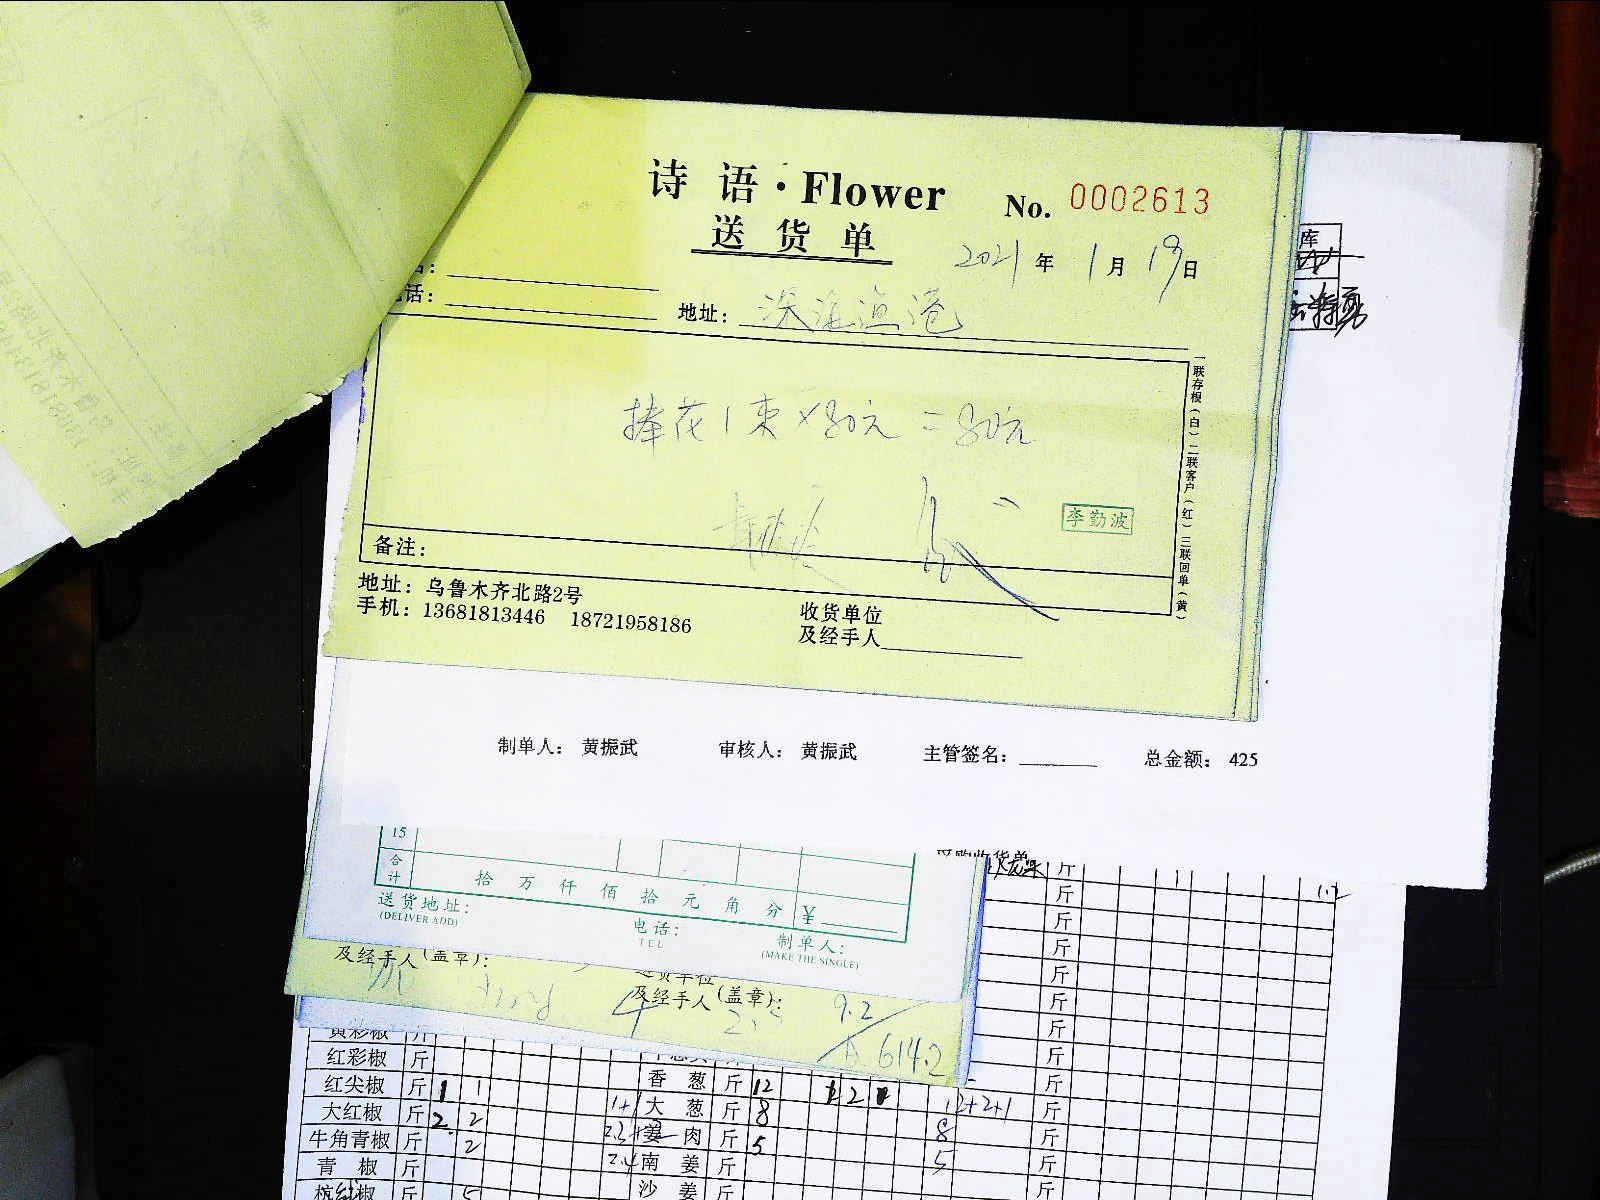 诗 语·Flower
No. 0002613
送 货 单
2021 年 1 月 19 日
名:
话:
地址: 深海渔港
捧花1束×80元=80元
李勤波
备注:
一联存根(白)二联客户(红)三联回单(黄)
地址: 乌鲁木齐北路2号
手机: 13681813446 18721958186
收货单位
及经手人
库
制单人: 黄振武 审核人: 黄振武 主管签名: 总金额: 425
15
合计
拾 万 仟 佰 拾 元 角 分 ¥
送货地址:
(DELIVER ADD)
电话:
TEL
制单人:
(MAKE THE SINGLE)
采购收货单
及经手人(盖章):
送货单位
及经手人(盖章):
9.2
614.2
斤
斤
斤
斤
斤
斤
斤
斤
黄彩椒 斤
红彩椒 斤
红尖椒 斤 1 1 香 葱 斤 12 斤
大红椒 斤 2 2 1+1 大 葱 斤 8 12+2+1 斤
牛角青椒 斤 2 姜 肉 斤 5 8 斤
青 椒 斤 2.4 南 姜 斤 5 斤
杭红椒 斤 5 沙 姜 斤 斤